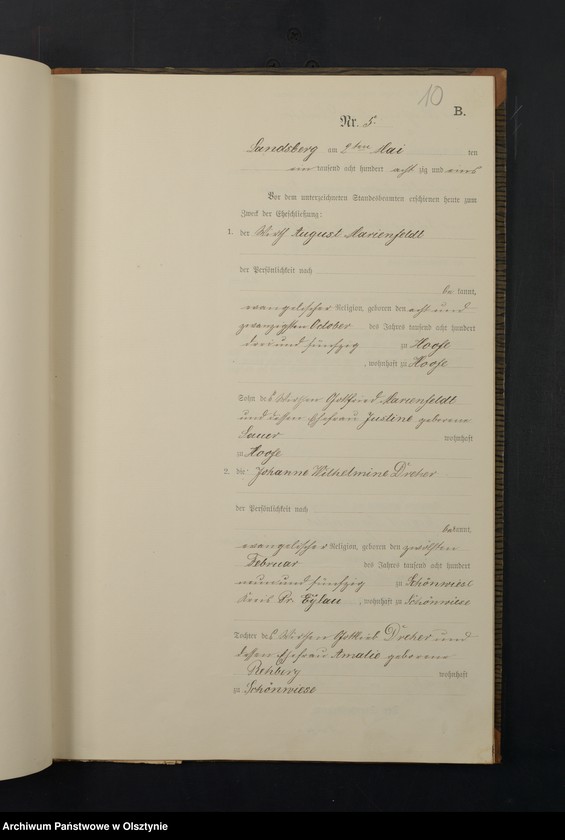 10
B.
Nr. 5.
Landsberg am 9ten Mai ten
ein tausend acht hundert acht zig und eins
Vor dem unterzeichneten Standesbeamten erschienen heute zum
Zweck der Eheschließung:
1. der Wirth August Marienfeldt
der Persönlichkeit nach
be kannt,
evangelischer Religion, geboren den acht und
zwanzigsten October des Jahres tausend acht hundert
drei und fünfzig zu Hoofe
, wohnhaft zu Hoofe
Sohn des Wirthen Gottfried Marienfeldt
und dessen Ehefrau Justine geborene
Lauer wohnhaft
zu Hoofe
2. die Johanne Wilhelmine Dreher
der Persönlichkeit nach
bekannt,
evangelischer Religion, geboren den zwölften
Februar des Jahres tausend acht hundert
neun und fünfzig zu Schönwiese
Kreis Pr. Eylau, wohnhaft zu Schönwiese
Tochter des Wirthen Gottlieb Dreher und
dessen Ehefrau Amalie geborene
Rehberg wohnhaft
zu Schönwiese
Archiwum Państwowe w Olsztynie